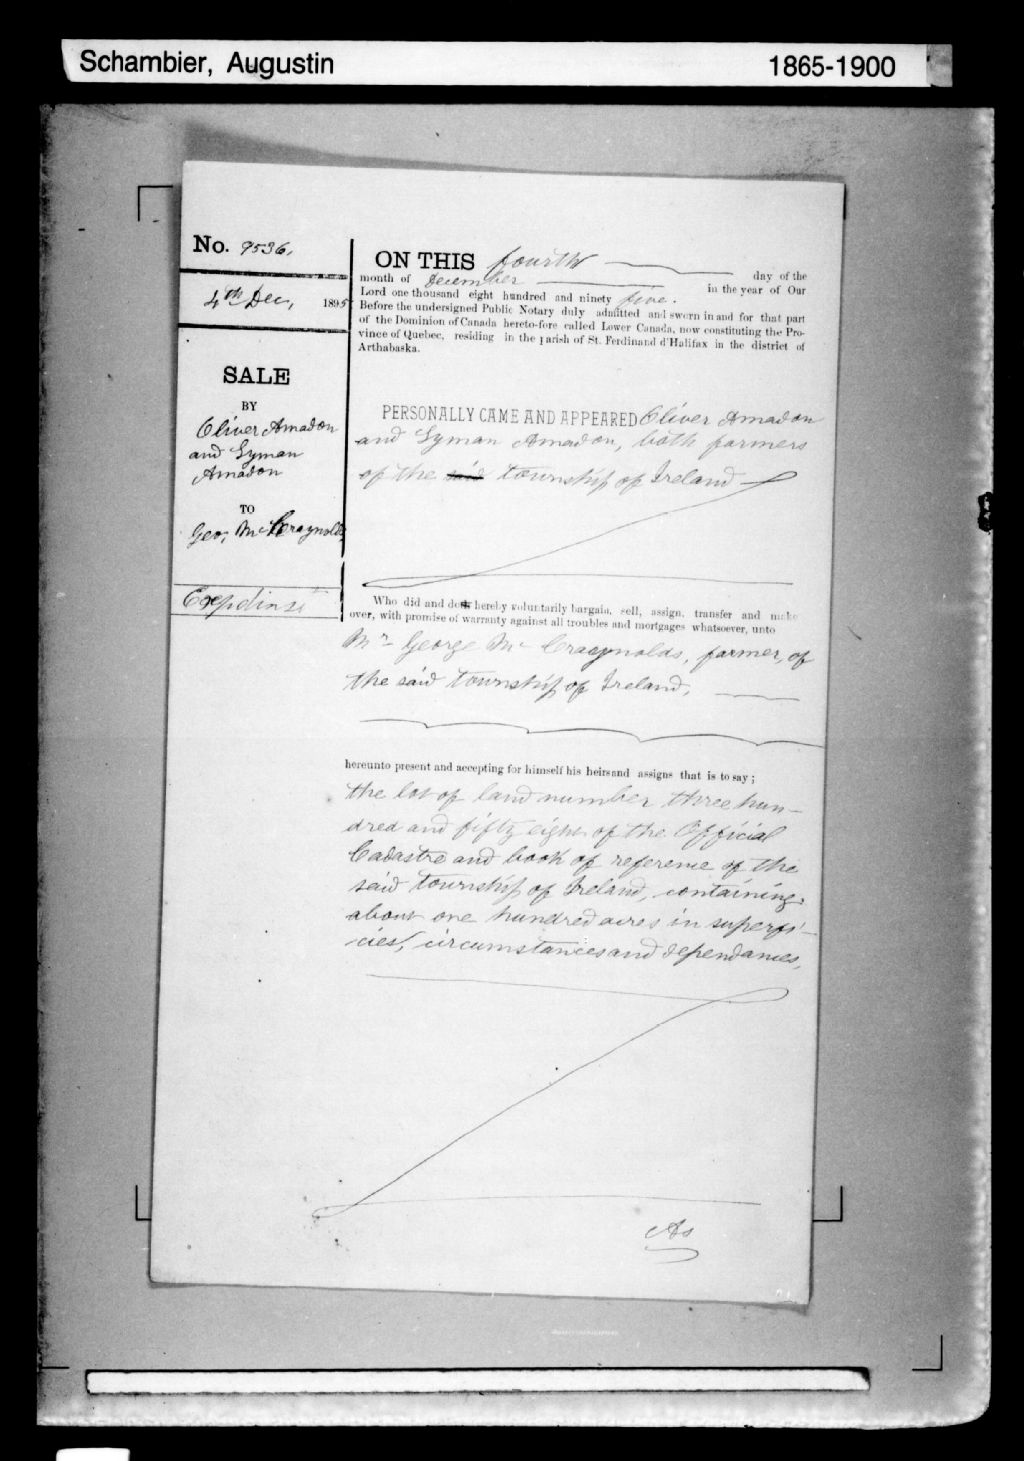 Schambier, Augustin
1865-1900
No. 9536.
4th Dec, 1895
SALE
BY
Oliver Amadon
and Lyman
Amadon
TO
Geo, McCraynolds
ON THIS fourth day of the
month of december in the year of Our
Lord one thousand eight hundred and ninety five.
Before the undersigned Public Notary duly admitted and sworn in and for that part
of the Dominion of Canada hereto-fore called Lower Canada, now constituting the Pro-
vince of Quebec, residing in the parish of St. Ferdinand d'Halifax in the district of
Arthabaska.
PERSONALLY CAME AND APPEARED Oliver Amadon
and Lyman Amadon, both farmers
of the said township of Ireland
Who did and do hereby voluntarily bargain, sell, assign, transfer and make
over, with promise of warranty against all troubles and mortgages whatsoever, unto
Mr George Mc Craynolds, farmer, of
the said township of Ireland,
hereunto present and accepting for himself his heirs and assigns that is to say;
the lot of land number three hun-
dred and fifty eight of the Official
Cadastre and book of reference of the
said township of Ireland, containing
about one hundred acres in superfi-
cies, circumstances and dependances,
As